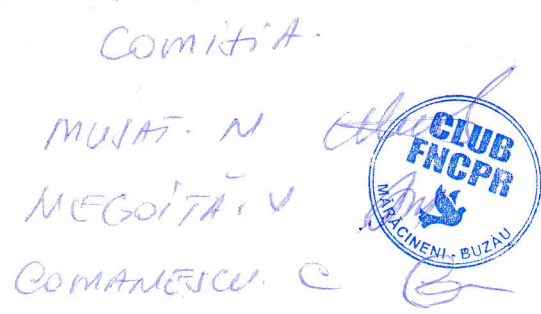 COMISIA.
MUSAT. N
NEGOITĂ. V
COMANESCU. C
CLUB
FNCPR
MĂRĂCINENI - BUZĂU